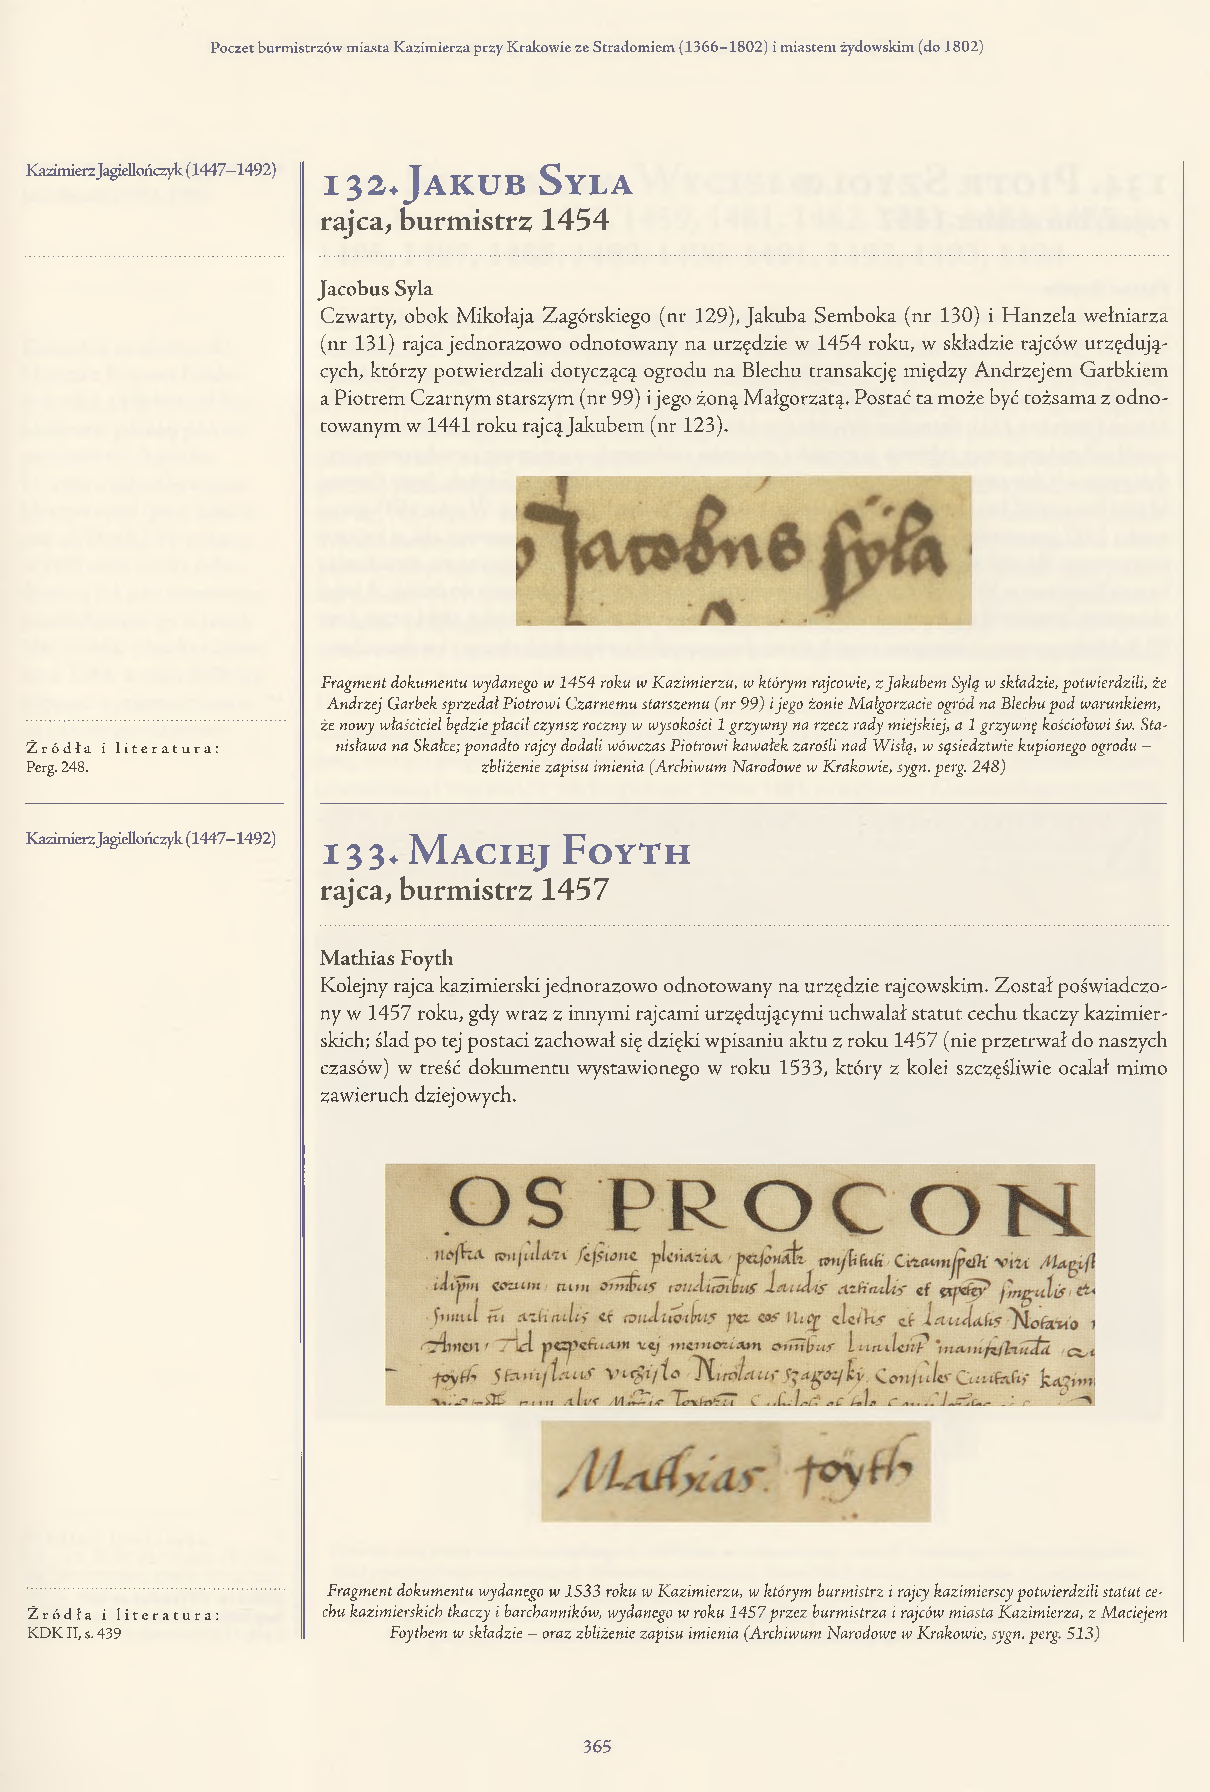 Poczet burmistrzów miasta Kazimierza przy Krakowie ze Stradomiem (1366–1802) i miastem żydowskim (do 1802)
Kazimierz Jagiellończyk (1447–1492)
132. Jakub Syla
rajca, burmistrz 1454
Jacobus Syla
Czwarty, obok Mikołaja Zagórskiego (nr 129), Jakuba Semboka (nr 130) i Hanzela wełniarza
(nr 131) rajca jednorazowo odnotowany na urzędzie w 1454 roku, w składzie rajców urzędują-
cych, którzy potwierdzali dotyczącą ogrodu na Blechu transakcję między Andrzejem Garbkiem
a Piotrem Czarnym starszym (nr 99) i jego żoną Małgorzatą. Postać ta może być tożsama z odno-
towanym w 1441 roku rajcą Jakubem (nr 123).
Jacobus Syla
Fragment dokumentu wydanego w 1454 roku w Kazimierzu, w którym rajcowie, z Jakubem Sylą w składzie, potwierdzili, że
Andrzej Garbek sprzedał Piotrowi Czarnemu starszemu (nr 99) i jego żonie Małgorzacie ogród na Blechu pod warunkiem,
że nowy właściciel będzie płacił czynsz roczny w wysokości 1 grzywny na rzecz rady miejskiej, a 1 grzywnę kościołowi św. Sta-
nisława na Skałce; ponadto rajcy dodali wówczas Piotrowi kawałek zarośli nad Wisłą, w sąsiedztwie kupionego ogrodu –
zbliżenie zapisu imienia (Archiwum Narodowe w Krakowie, sygn. perg. 248)
Źródła i literatura:
Perg. 248.
Kazimierz Jagiellończyk (1447–1492)
133. Maciej Foyth
rajca, burmistrz 1457
Mathias Foyth
Kolejny rajca kazimierski jednorazowo odnotowany na urzędzie rajcowskim. Został poświadczo-
ny w 1457 roku, gdy wraz z innymi rajcami urzędującymi uchwalał statut cechu tkaczy kazimier-
skich; ślad po tej postaci zachował się dzięki wpisaniu aktu z roku 1457 (nie przetrwał do naszych
czasów) w treść dokumentu wystawionego w roku 1533, który z kolei szczęśliwie ocalał mimo
zawieruch dziejowych.
OS PROCON
Mathias foyth
Fragment dokumentu wydanego w 1533 roku w Kazimierzu, w którym burmistrz i rajcy kazimierscy potwierdzili statut ce-
chu kazimierskich tkaczy i barchanników, wydanego w roku 1457 przez burmistrza i rajców miasta Kazimierza, z Maciejem
Foythem w składzie – oraz zbliżenie zapisu imienia (Archiwum Narodowe w Krakowie, sygn. perg. 513)
Źródła i literatura:
KDK II, s. 439
365